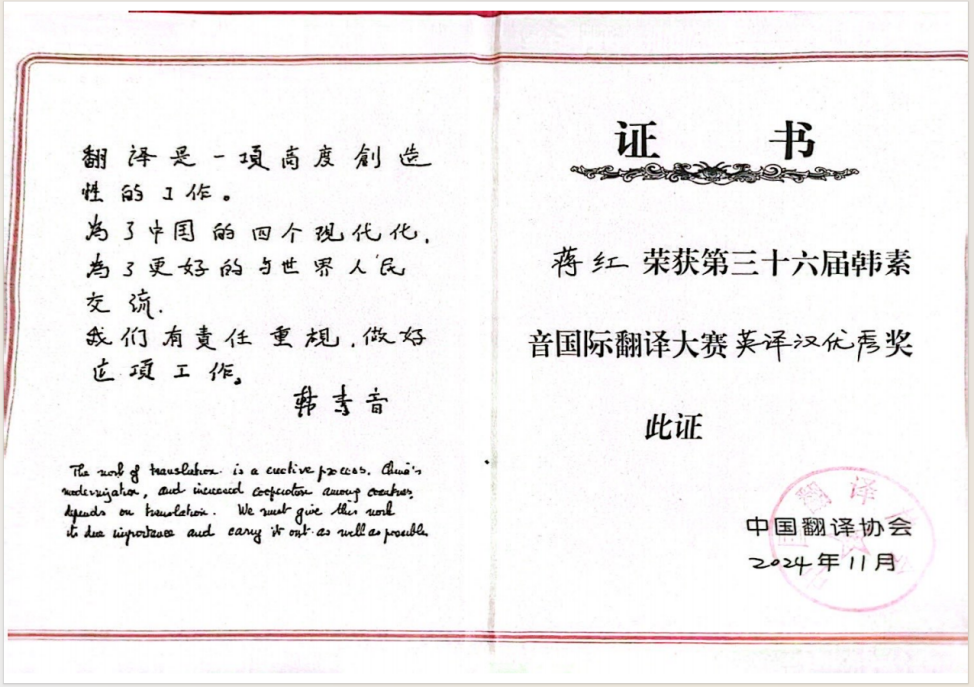 翻译是一項高度創造
性的工作。
為了中国的四个现代化,
為了更好的与世界人民
交流.
我们有責任重視,做好
这項工作。
韩素音
The work of translation is a creative process. China's
modernization, and increased cooperation among countries,
depends on translation. We must give this work
its due importance and carry it out as well as possible.
证 书
蒋红 荣获第三十六届韩素
音国际翻译大赛英译汉优秀奖
此证
中国翻译协会
2024年11月